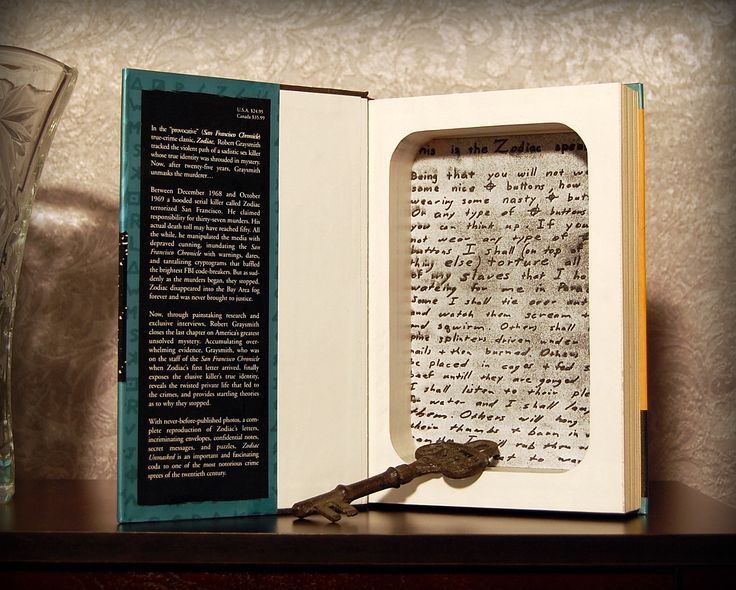 U.S.A. $24.95
Canada $35.99
In the "provocative" (San Francisco Chronicle)
true-crime classic, Zodiac, Robert Graysmith
tracked the violent path of a sadistic sex killer
whose true identity was shrouded in mystery.
Now, after twenty-five years, Graysmith
unmasks the murderer…
Between December 1968 and October
1969 a hooded serial killer called Zodiac
terrorized San Francisco. He claimed
responsibility for thirty-seven murders. His
actual death toll may have reached fifty. All
the while, he manipulated the media with
depraved cunning, inundating the San
Francisco Chronicle with warnings, dares,
and tantalizing cryptograms that baffled
the brightest FBI code-breakers. But as sud-
denly as the murders began, they stopped.
Zodiac disappeared into the Bay Area fog
forever and was never brought to justice.
Now, through painstaking research and
exclusive interviews, Robert Graysmith
closes the last chapter on America's greatest
unsolved mystery. Accumulating over-
whelming evidence, Graysmith, who was
on the staff of the San Francisco Chronicle
when Zodiac's first letter arrived, finally
exposes the elusive killer's true identity,
reveals the twisted private life that led to
the crimes, and provides startling theories
as to why they stopped.
With never-before-published photos, a com-
plete reproduction of Zodiac's letters,
incriminating envelopes, confidential notes,
secret messages, and puzzles, Zodiac
Unmasked is an important and fascinating
coda to one of the most notorious crime
sprees of the twentieth century.
is the Zodiac spea
Being that you will not w
some nice ⌖ buttons, how
wearing some nasty ⌖ but
Or any type of ⌖ buttons
you can think up. If you
not wear any type of
buttons I shall (on top
thing else) torture all
of my slaves that I h
wateing for me in Para
Some I shall tie over ant
and watch them scream +
and squirm. Others shall
pine splinters driven unde
nails + then burned. Others
be placed in cages + fed s
beef untill they are gorged
I shall listen to their pl
for water and I shall lau
them. Others will hang
their thumbs + burn in
I will rub them